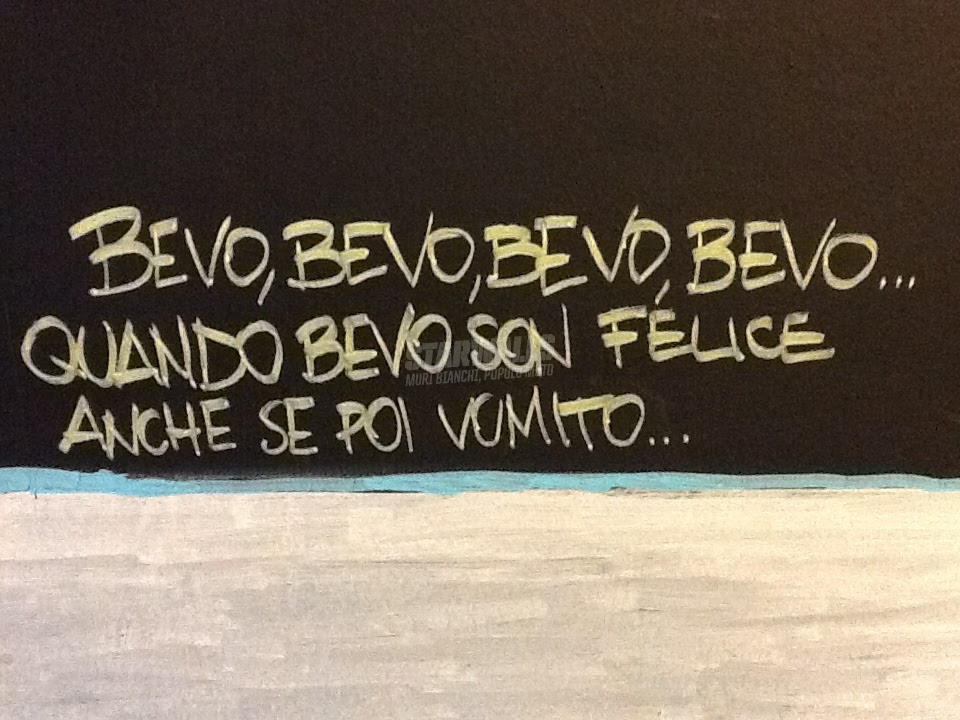 BEVO, BEVO, BEVO, BEVO...
QUANDO BEVO SON FELICE
ANCHE SE POI VOMITO...
STERCO.IT
MURI BIANCHI, POPOLO MUTO